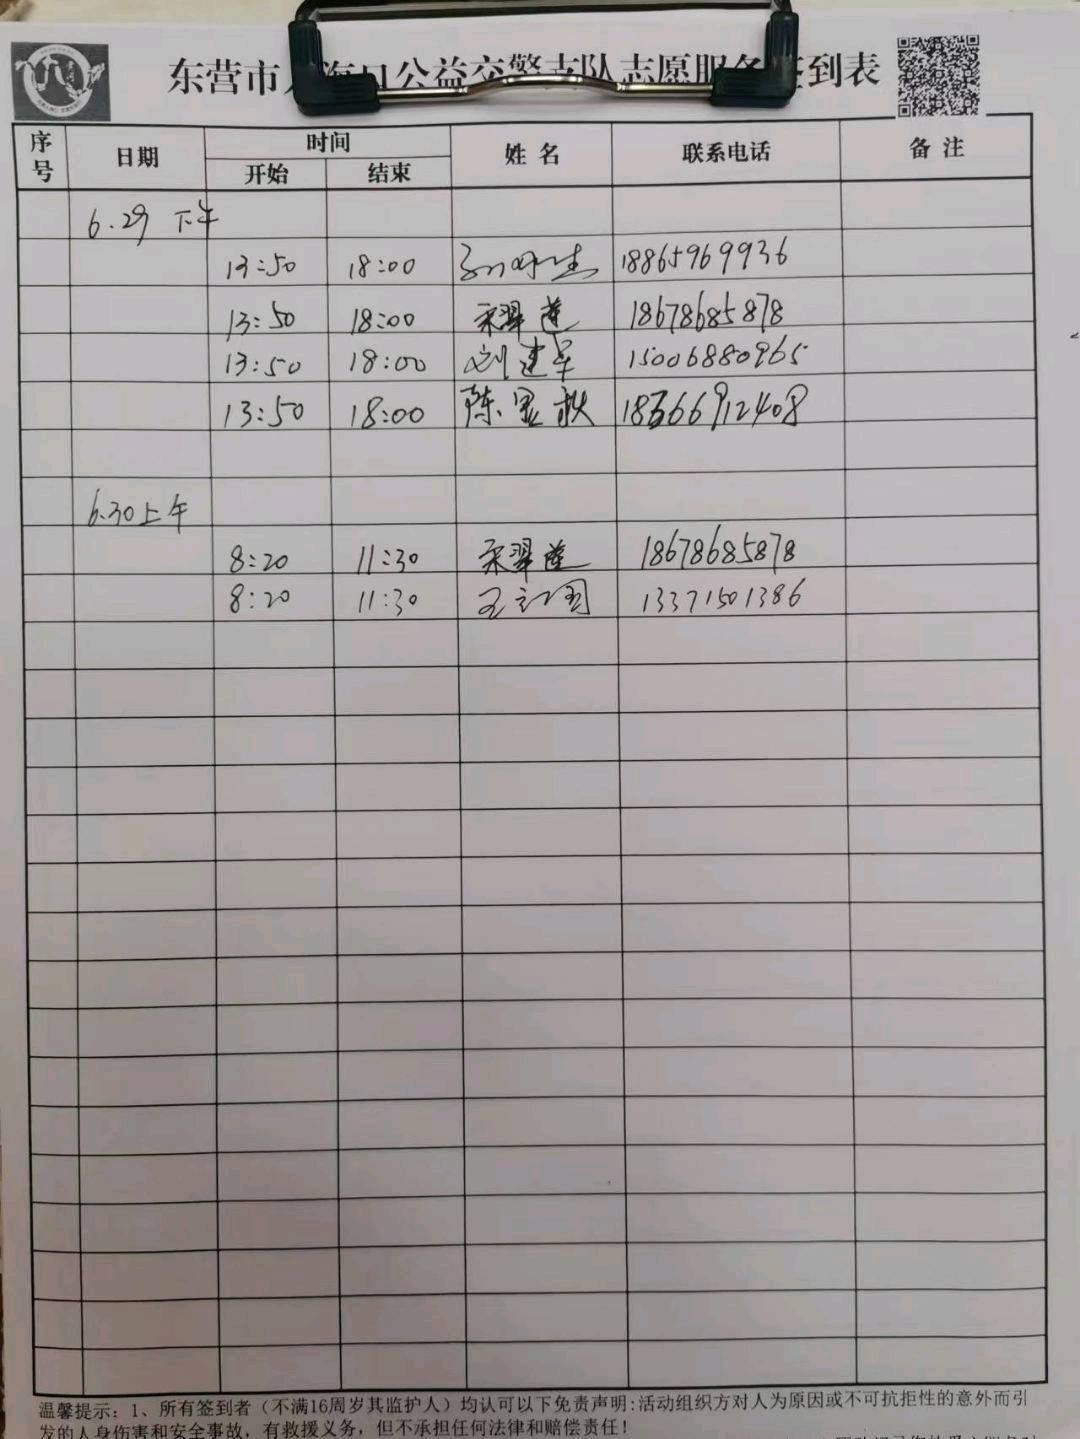 东营市 海口公益交警支队志愿服务签到表
序号 日期 时间 姓名 联系电话 备注
开始 结束
6.29 下午
13:50 18:00 18865969936
13:50 18:00 宋翠莲 18678685878
13:50 18:00 刘建军 15006880965
13:50 18:00 陈 秋 18366912408
6.30上午
8:20 11:30 宋翠莲 18678685878
8:20 11:30 王 国 13371501386
温馨提示：1、所有签到者（不满16周岁其监护人）均认可以下免责声明:活动组织方对人为原因或不可抗拒性的意外而引
发的人身伤害和安全事故，有救援义务，但不承担任何法律和赔偿责任！